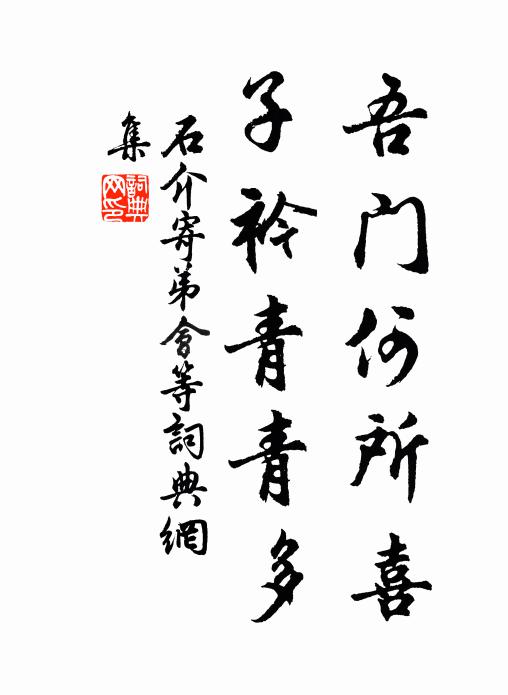 吾門何所喜
子衿青青多
石介寄弟會等詞典網
集
詞典
网印